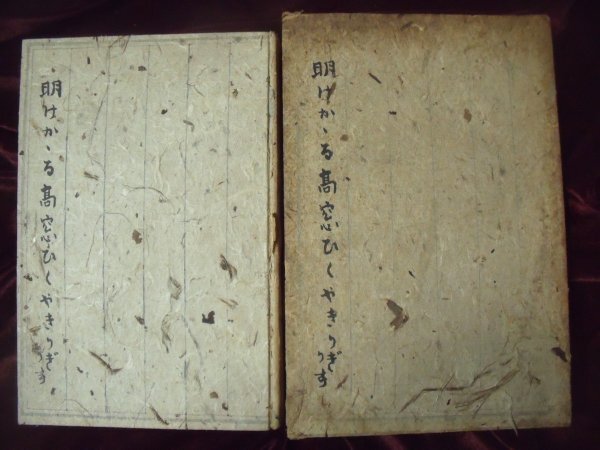 明けかゝる高窓ひくやきりぎりす
明けかゝる高窓ひくやきりぎりす